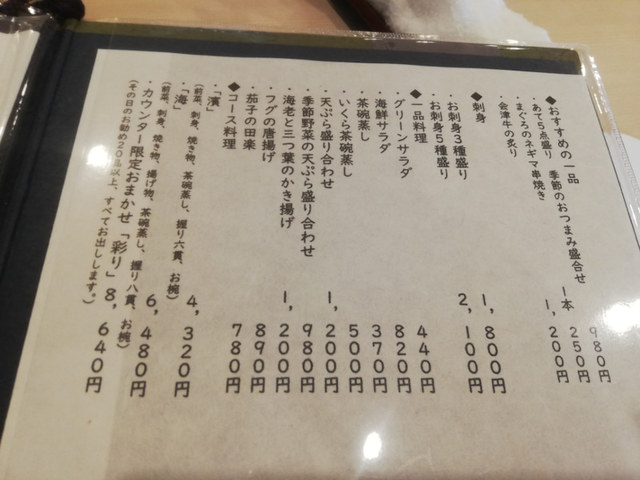 ◆おすすめの一品
・あて5点盛り 季節のおつまみ盛合せ 980円
・まぐろのネギマ串焼き 1本 250円
・会津牛の炙り 1,200円
◆刺身
・お刺身3種盛り 1,800円
・お刺身5種盛り 2,100円
◆一品料理
・グリーンサラダ 440円
・海鮮サラダ 820円
・茶碗蒸し 370円
・いくら茶碗蒸し 500円
・天ぷら盛り合わせ 1,200円
・季節野菜の天ぷら盛り合わせ 980円
・海老と三つ葉のかき揚げ 1,200円
・フグの唐揚げ 890円
・茄子の田楽 780円
◆コース料理
・「濱」 4,320円
(前菜、刺身、焼き物、茶碗蒸し、握り六貫、お椀)
・「海」 6,480円
(前菜、刺身、焼き物、揚げ物、茶碗蒸し、握り八貫、お椀)
・カウンター限定おまかせ「彩り」 8,640円
(その日のお勧め20品以上、すべてお出しします。)